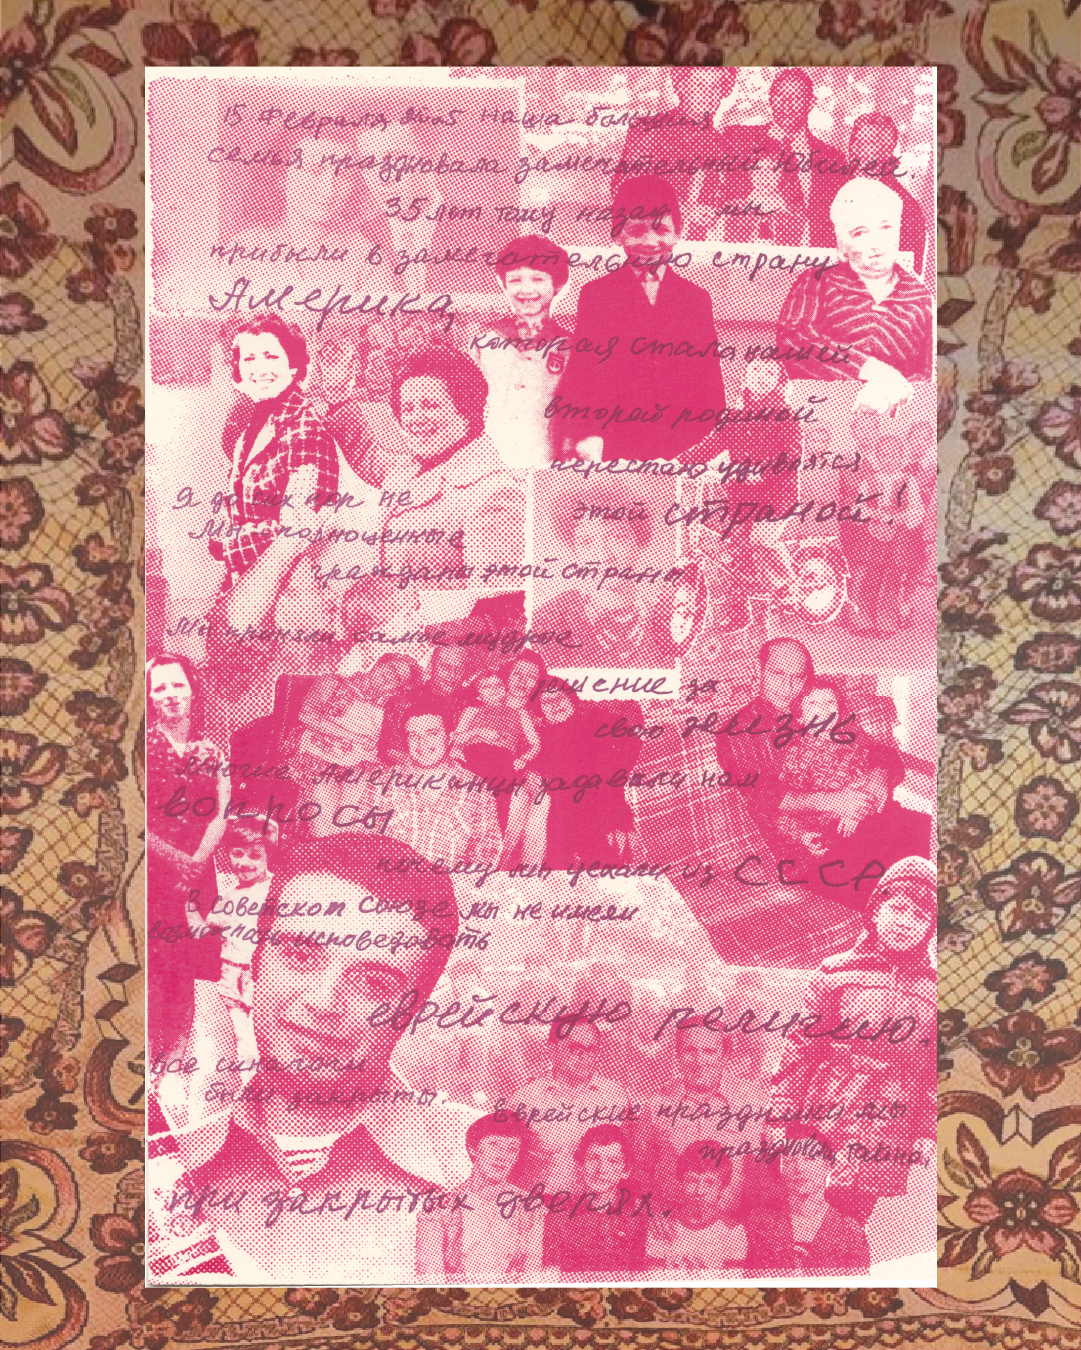 15 Февраля 2025 наша большая
семья праздновала замечательный Юбилей.
35 лет тому назад мы
прибыли в замечательную страну
Америка,
которая стала нашей
второй родиной
Я до сих пор не
перестаю удивлятся
этой страной!
Мы полноценные
граждане этой страны
Мы приняли самое мудрое
решение за
свою жизнь
Многие Американцы задавали нам
вопросы
почему мы уехали из СССР.
В Советском Союзе мы не имели
возможность исповедовать
еврейскую религию.
все синагоги
были закрыты.
Еврейские праздники мы
праздновали тайно,
при закрытых дверях.